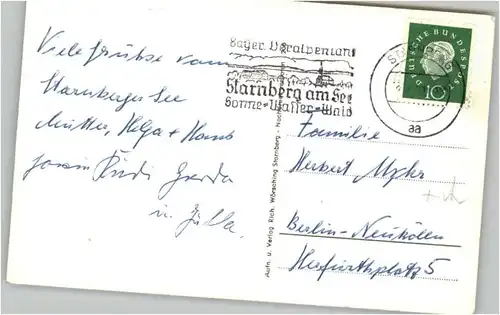 Viele Grüße vom
Starnberger See
Mutter, Helga + Hans
sowie Gerda
u.
Bayer. Voralpenland
Starnberg am See
Sonne-Wasser-Wald
DEUTSCHE BUNDESPOST
10
aa
Familie
Herbert
Berlin-Neukölln
Herfurthplatz 5
Aufn. u. Verlag Rich. Wörsching Starnberg